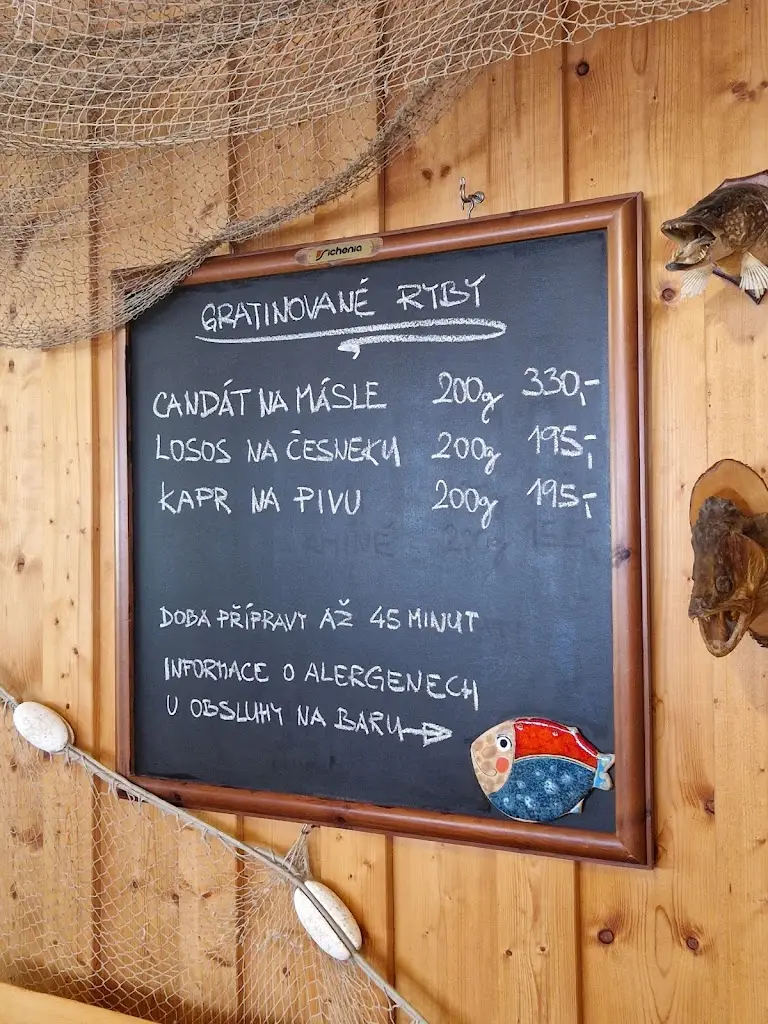 Sichenia
GRATINOVANÉ RYBY
CANDÁT NA MÁSLE 200g 330,-
LOSOS NA ČESNEKU 200g 195,-
KAPR NA PIVU 200g 195,-
DOBA PŘÍPRAVY AŽ 45 MINUT
INFORMACE O ALERGENECH
U OBSLUHY NA BARU